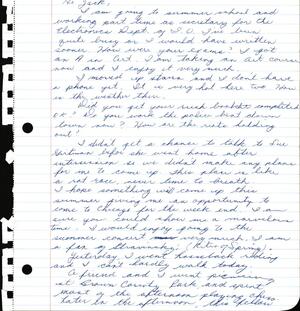 Hi Jack,
I am going to summer school and
working part time as secretary for the
Electronics Dept. of I.U. I'm busy
quite busy or I would have written
sooner. How were your exams? I got
an A in Art. I am taking an Art course
now and I enjoy it very much.
I moved up stairs and I don't have
a phone yet. It is very hot here too. How
is the weather there.
Did you get your rush basket completed
or? Do you work the police beat down
town now? How are the rest holding
out?
I didn't get a chance to talk to Sue
before she went home after
intersession so we didn't make any plans
for me to come up. This place is like
a rat race, never time to breathe.
I hope something will come up this
summer giving me an opportunity to
come to Chicago for the week end. I am
sure you could show me a marvelous
time. I would enjoy going to the
summer concert very much. I am
a fan of Stravinsky. (Rite of Spring)
Yesterday I went horseback riding
and I can't hardly walk today.
A friend and I went picnicing
at Brown County Park and spent
most of the afternoon playing chess.
later in the afternoon, this fellow